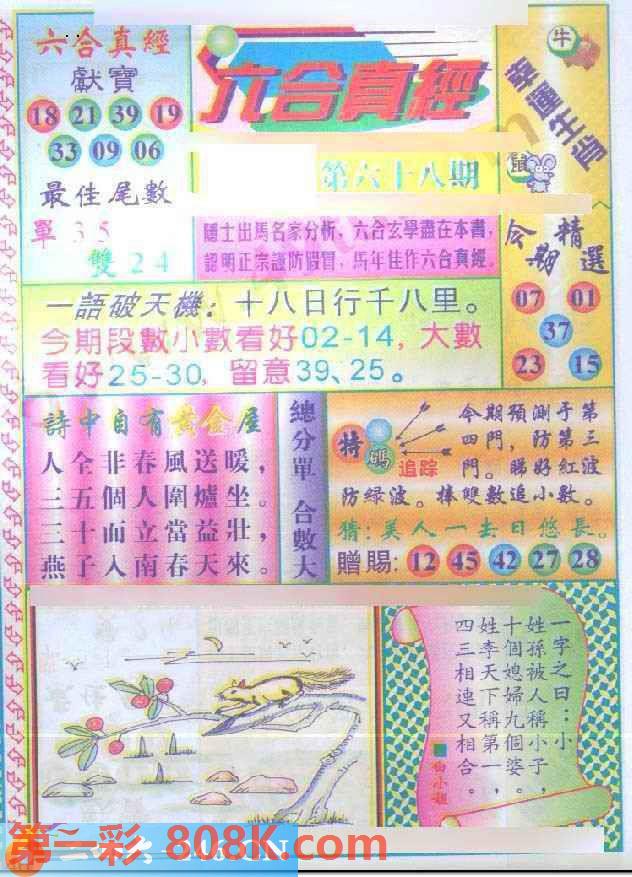 六合真經
獻寶
18 21 39 19
33 09 06
最佳尾數
單 3 5
雙 2 4
六合真經
第六十八期
牛
幸運生肖
鼠
隱士出馬名家分析，六合玄學盡在本書，
認明正宗謹防假冒，馬年佳作六合真經。
今期精選
07 01
37
23 15
一語破天機：十八日行千八里。
今期段數小數看好02-14，大數
看好25-30，留意39、25。
詩中自有黃金屋
人全非春風送暖，
三五個人圍爐坐。
三十而立當益壯，
燕子入南春天來。
總分單 合數大
特碼追踪
今期預測于第
四門，防第三
門。睇好紅波
防绿波。捧雙數追小數。
猜：美人一去日悠長。
贈賜：12 45 42 27 28
一字之曰：小
姓孫被人稱小子，
十個媳婦九個婆。
姓李天下稱第一，
四三相連又相合。
第一彩 808K.com